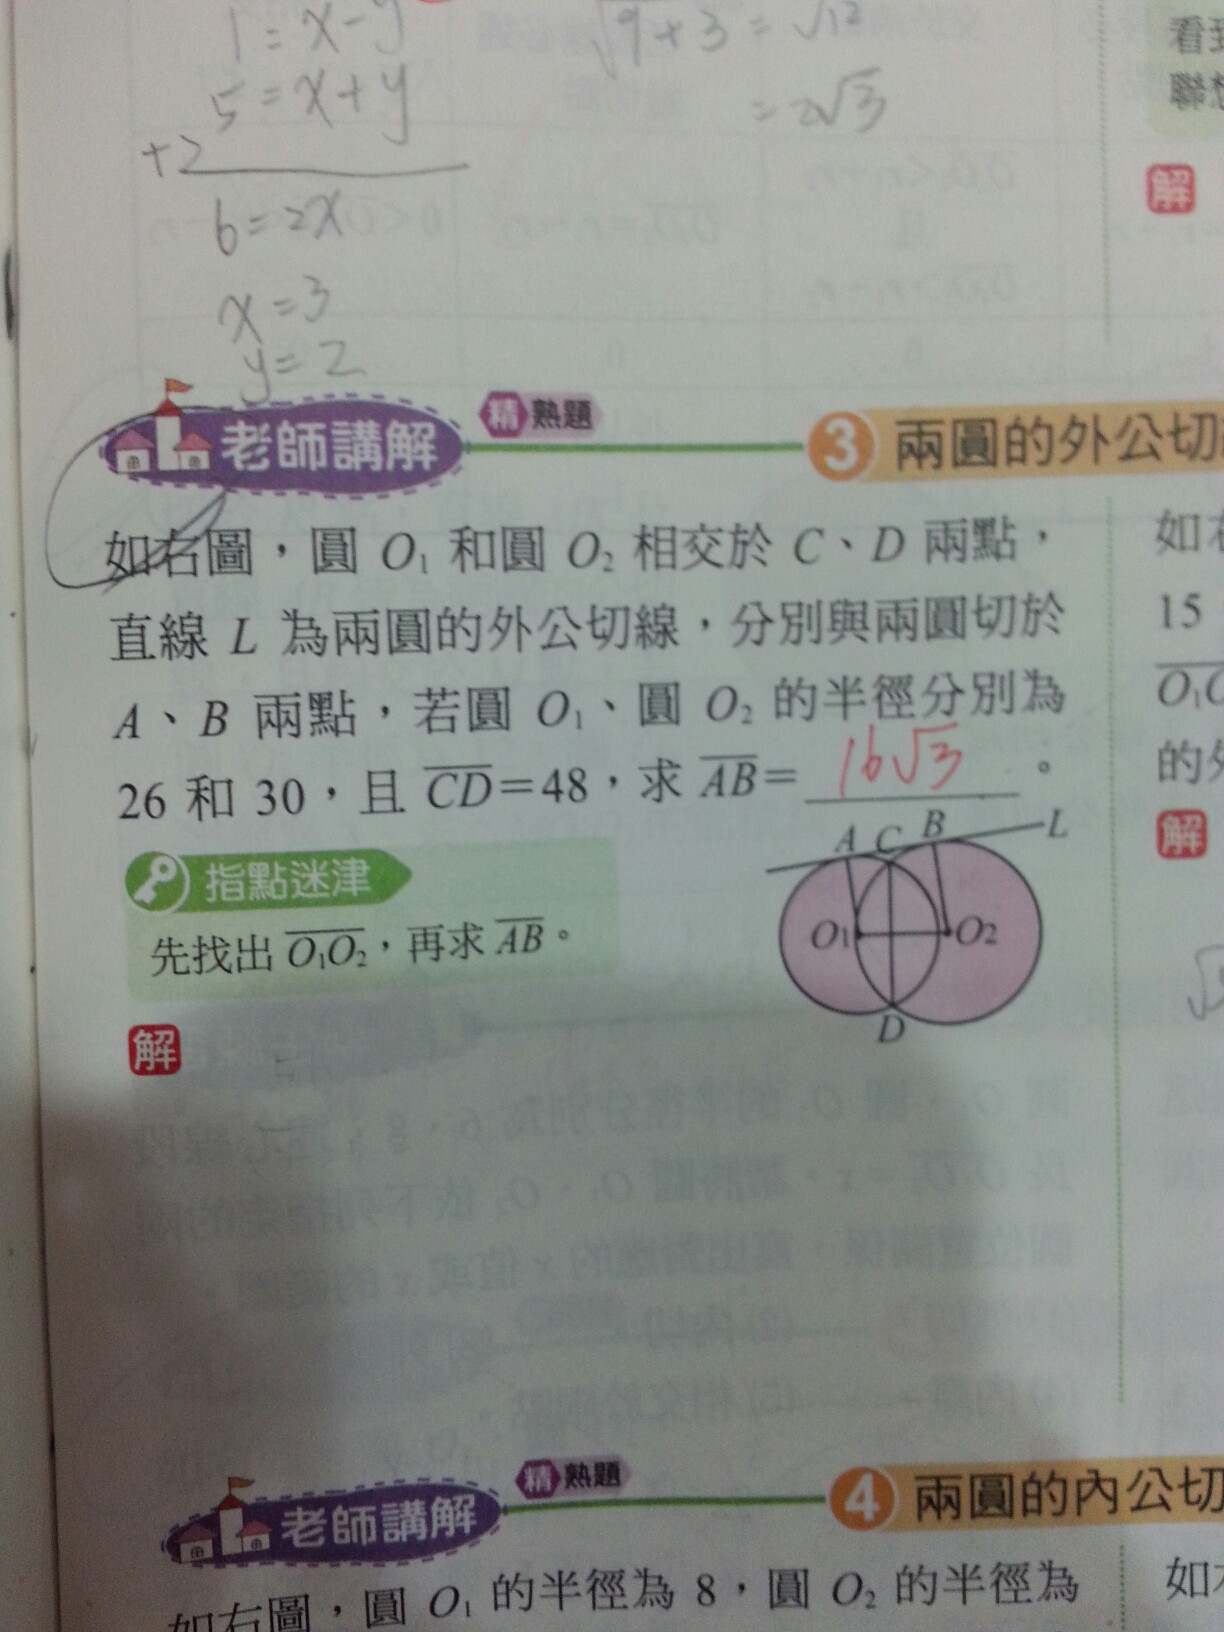 1 = x - y
√9+3 = √12
5 = x + y
= 2√3
+2
6 = 2x
x = 3
y = 2
看到
聯想
解
老師講解 精熟題 3 兩圓的外公切
如右圖，圓 O₁ 和圓 O₂ 相交於 C、D 兩點，
直線 L 為兩圓的外公切線，分別與兩圓切於
A、B 兩點，若圓 O₁、圓 O₂ 的半徑分別為
26 和 30，且 CD=48，求 AB= 16√3 。
指點迷津
先找出 O₁O₂，再求 AB。
A C B L
O₁ O₂
D
解
老師講解 精熟題 4 兩圓的內公切
如右圖，圓 O₁ 的半徑為 8，圓 O₂ 的半徑為
如右
15
O₁
的外
解
如